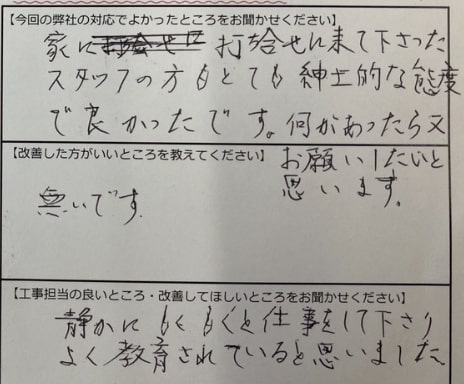 【今回の弊社の対応でよかったところをお聞かせください】
家に打合せに来て下さった
スタッフの方もとても紳士的な態度
で良かったです。何があったら又
お願いしたいと
思います。
【改善した方がいいところを教えてください】
無いです。
【工事担当の良いところ・改善してほしいところをお聞かせください】
静かにもくもくと仕事をして下さり
よく教育されていると思いました